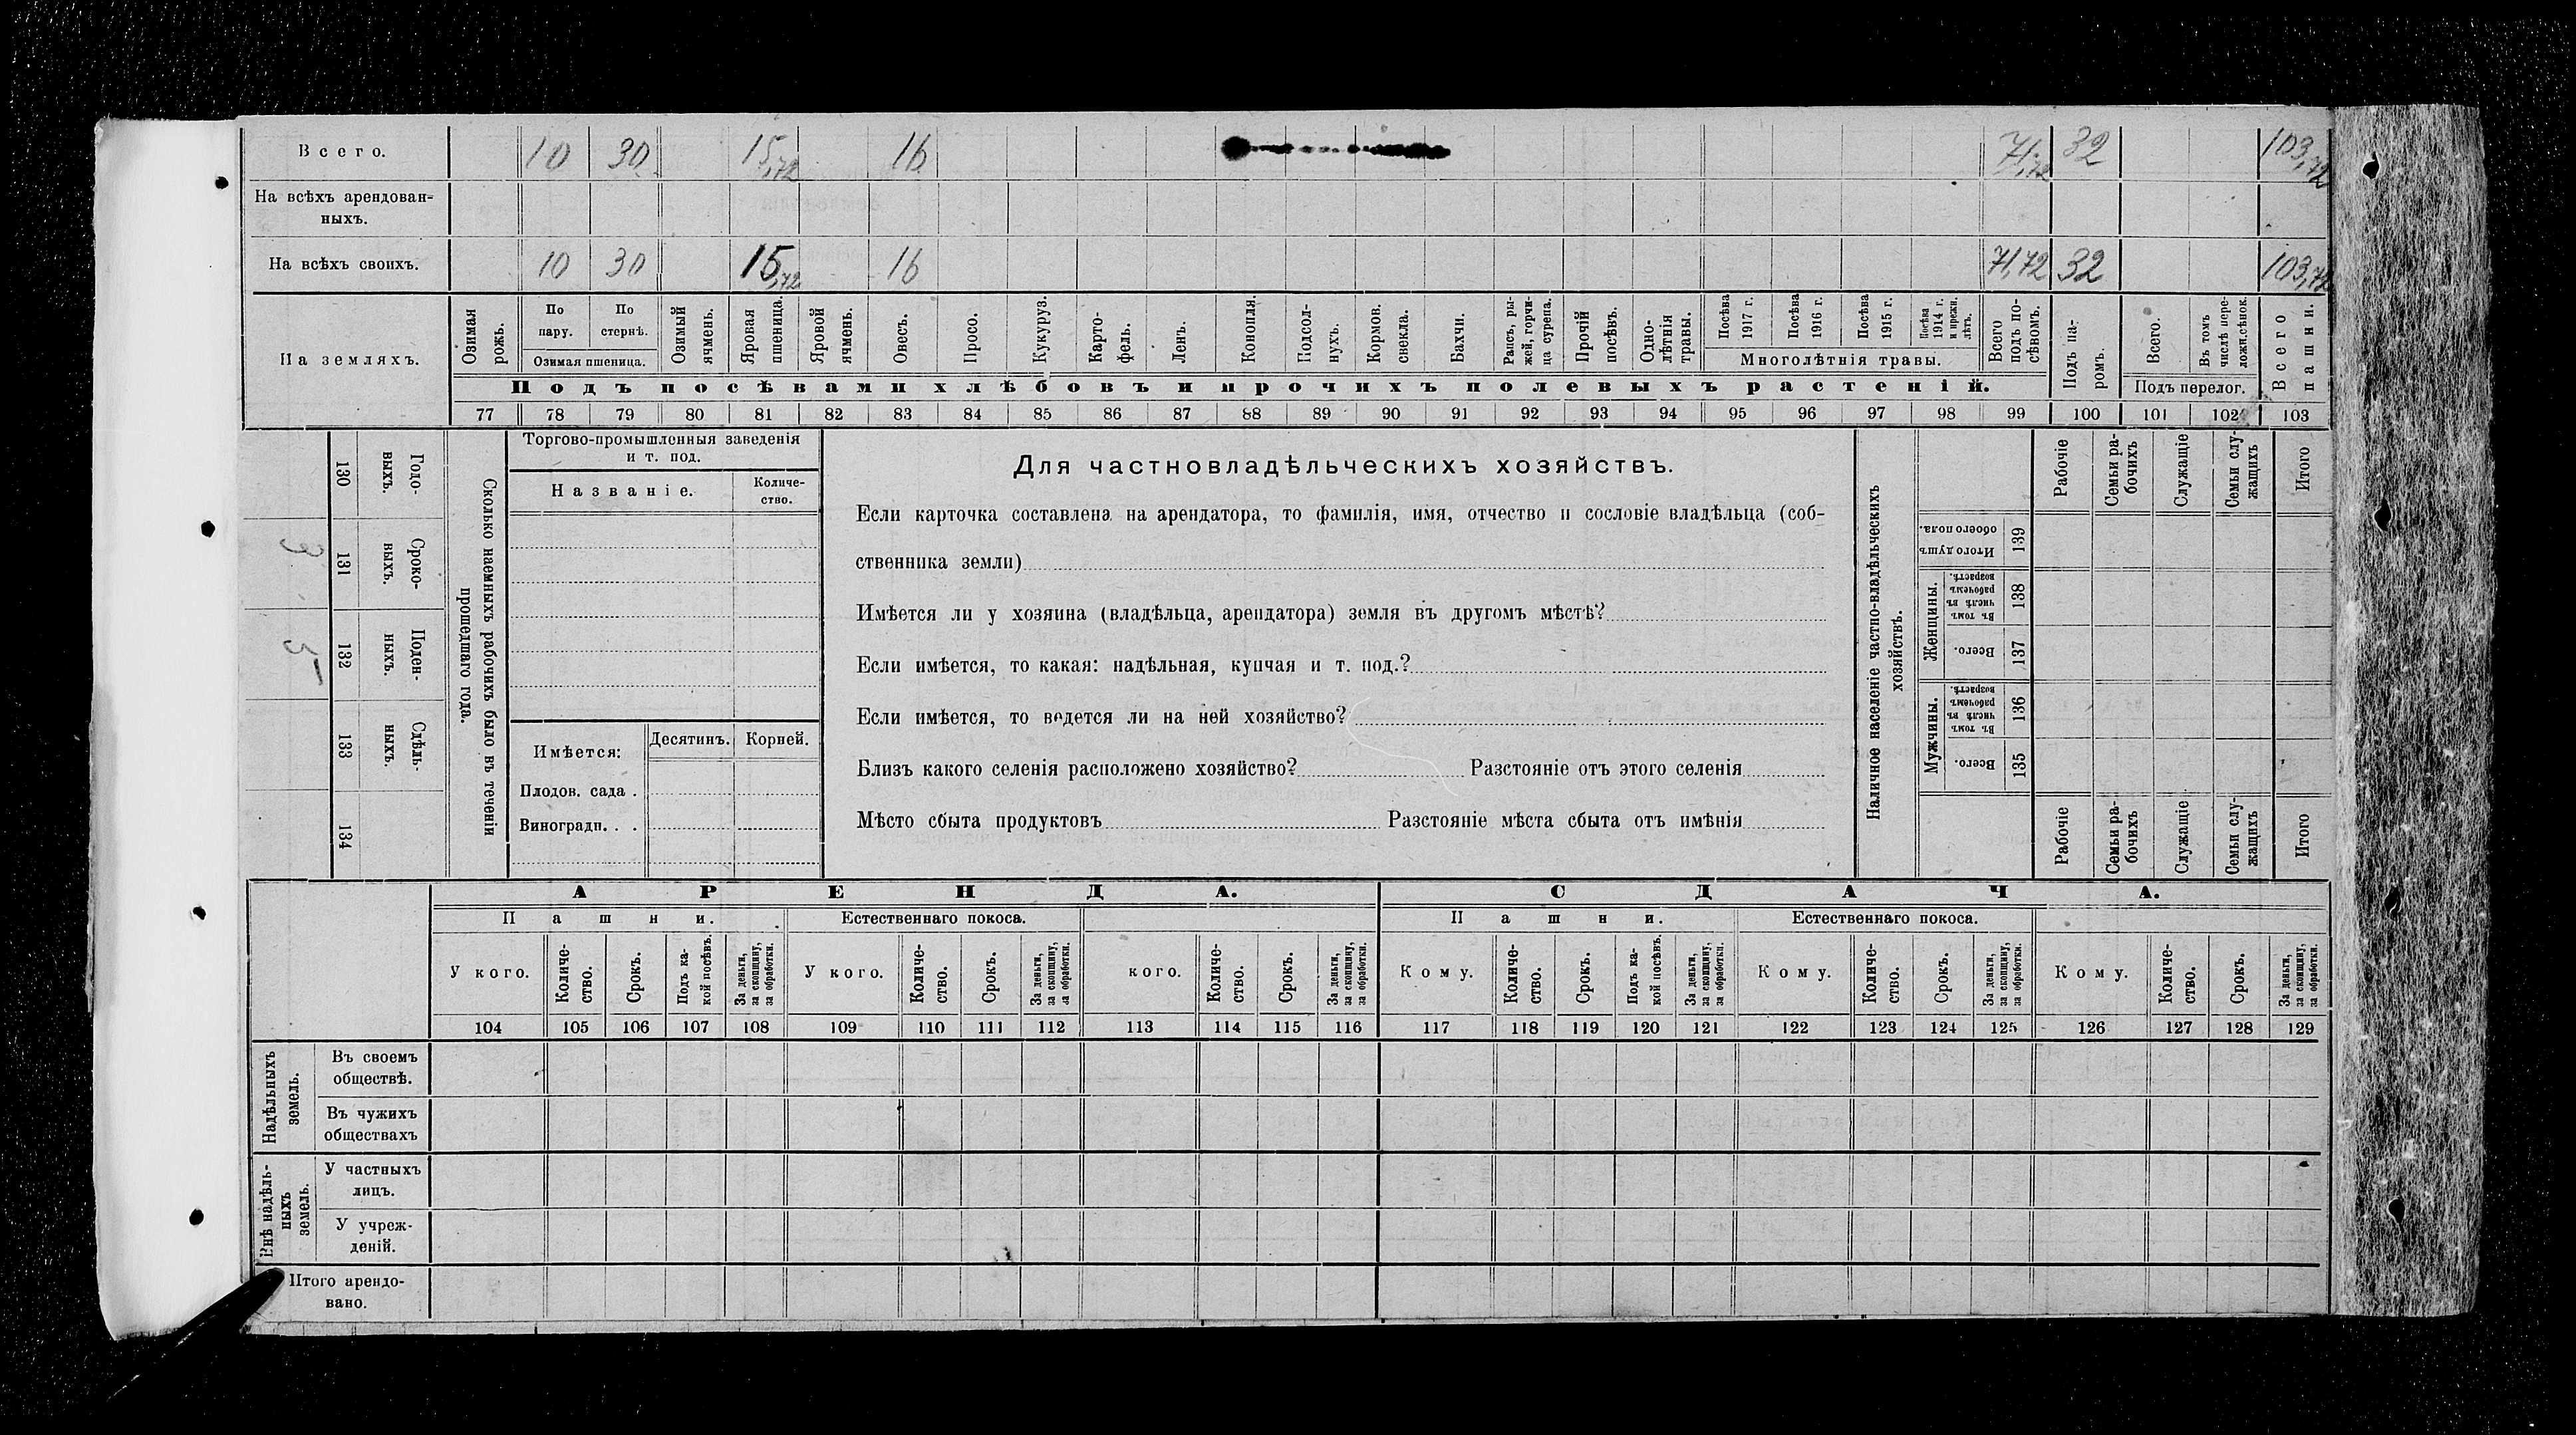 Всего. 10 30 15,72 16 71,72 32 103,72
На всѣхъ арендован-
ныхъ.
На всѣхъ своихъ. 10 30 15,72 16 71,72 32 103,72
На земляхъ.
Озимая рожь.
По пару.
По стернѣ.
Озимая пшеница.
Озимый ячмень.
Яровая пшеница.
Яровой ячмень.
Овесъ.
Просо.
Кукуруз.
Карто-
фель.
Ленъ.
Конопля.
Подсол-
нухъ.
Кормов. свекла.
Бахчи.
Рапсъ, ры-
жей, горчи-
ца сурепа.
Прочій посѣвъ.
Одно-
лѣтнія травы.
Посѣва 1917 г.
Посѣва 1916 г.
Посѣва 1915 г.
Посѣва 1914 г. и прежн. лѣтъ.
Многолѣтнія травы.
Всего подъ по-
сѣвомъ.
Подъ па-
ромъ.
Всего.
Въ томъ числѣ пере-
ложн. сѣнок.
Подъ перелог.
Всего пашни.
Подъ посѣвами хлѣбовъ и прочихъ полевыхъ растеній.
77 78 79 80 81 82 83 84 85 86 87 88 89 90 91 92 93 94 95 96 97 98 99 100 101 102 103
Сколько наемныхъ рабочихъ было въ теченіи
прошедшаго года.
Годо-
выхъ.
130
Сроко-
ныхъ.
131
3
Поден-
ныхъ.
132
5
Сдѣль-
ныхъ.
133
134
Торгово-промышленныя заведенія
и т. под.
Названіе.
Количе-
ство.
Имѣется:
Десятинъ. Корней.
Плодов. сада .
Виноградн. . .
Для частновладѣльческихъ хозяйствъ.
Если карточка составлена на арендатора, то фамилія, имя, отчество и сословіе владѣльца (соб-
ственника земли)
Имѣется ли у хозяина (владѣльца, арендатора) земля въ другомъ мѣстѣ?
Если имѣется, то какая: надѣльная, купчая и т. под.?
Если имѣется, то ведется ли на ней хозяйство?
Близъ какого селенія расположено хозяйство? Разстояніе отъ этого селенія
Мѣсто сбыта продуктовъ Разстояніе мѣста сбыта отъ имѣнія
Наличное населеніе частно-владѣльческихъ
хозяйствѣ.
Рабочіе
Семьи ра-
бочихъ
Служащіе
Семьи слу-
жащихъ
Итого
Итого душъ
обоего пола.
139
Женщины.
Въ томъ числѣ въ рабочемъ возрастѣ.
138
Всего.
137
Мужчины.
Въ томъ числѣ въ рабочемъ возрастѣ.
136
Всего.
135
Рабочіе
Семьи ра-
бочихъ
Служащіе
Семьи слу-
жащихъ
Итого
АРЕНДА. СДАЧА.
Пашни. Естественнаго покоса. Пашни. Естественнаго покоса.
У кого.
Количе-
ство.
Срокъ.
Подъ ка-
кой посѣвъ.
За деньги,
за скопщину,
за обработки.
У кого.
Количе-
ство.
Срокъ.
За деньги,
за скопщину,
за обработки.
кого.
Количе-
ство.
Срокъ.
За деньги,
за скопщину,
за обработки.
Кому.
Количе-
ство.
Срокъ.
Подъ ка-
кой посѣвъ.
За деньги,
за скопщину,
за обработки.
Кому.
Количе-
ство.
Срокъ.
За деньги,
за скопщину,
за обработки.
Кому.
Количе-
ство.
Срокъ.
За деньги,
за скопщину,
за обработки.
104 105 106 107 108 109 110 111 112 113 114 115 116 117 118 119 120 121 122 123 124 125 126 127 128 129
Надѣльныхъ
земель.
Въ своемъ
обществѣ.
Въ чужихъ
обществахъ
Внѣ надѣль-
ныхъ
земель.
У частныхъ
лицъ.
У учреж-
деній.
Итого арендо-
вано.